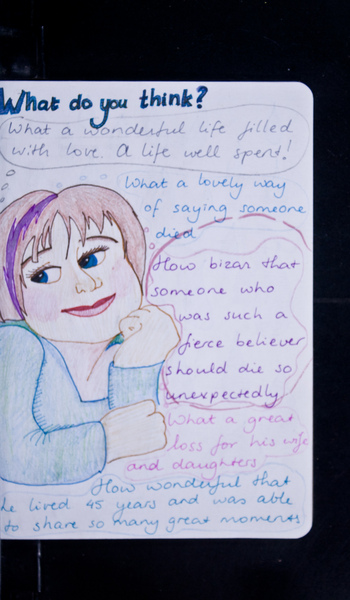 What do you think?
What a wonderful life filled
with love. A life well spent!
What a lovely way
of saying someone
died
How bizar that
someone who
was such a
fierce believer
should die so
unexpectedly
What a great
loss for his wife
and daughters
How wonderful that
he lived 45 years and was able
to share so many great moments